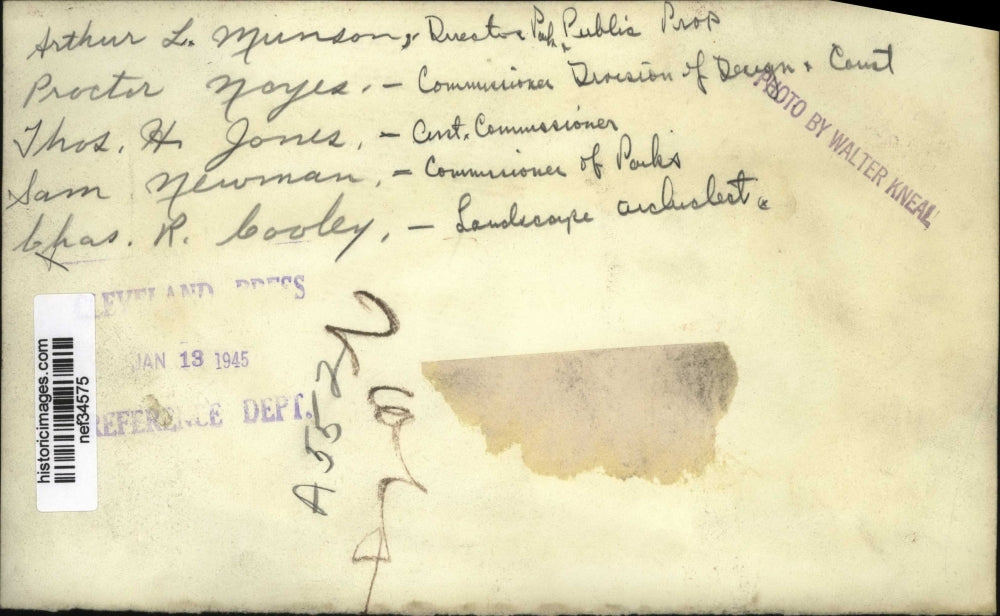 Arthur L. Munson, - Director Park, Public Prop
Proctor Noyes. - Commissioner Division of Design & Const
Thos. H. Jones. - Asst. Commissioner
Sam Newman. - Commissioner of Parks
Chas. R. Cooley. - Landscape architect
PHOTO BY WALTER KNEAL
CLEVELAND PRESS
JAN 13 1945
REFERENCE DEPT.
historicimages.com
nef34575